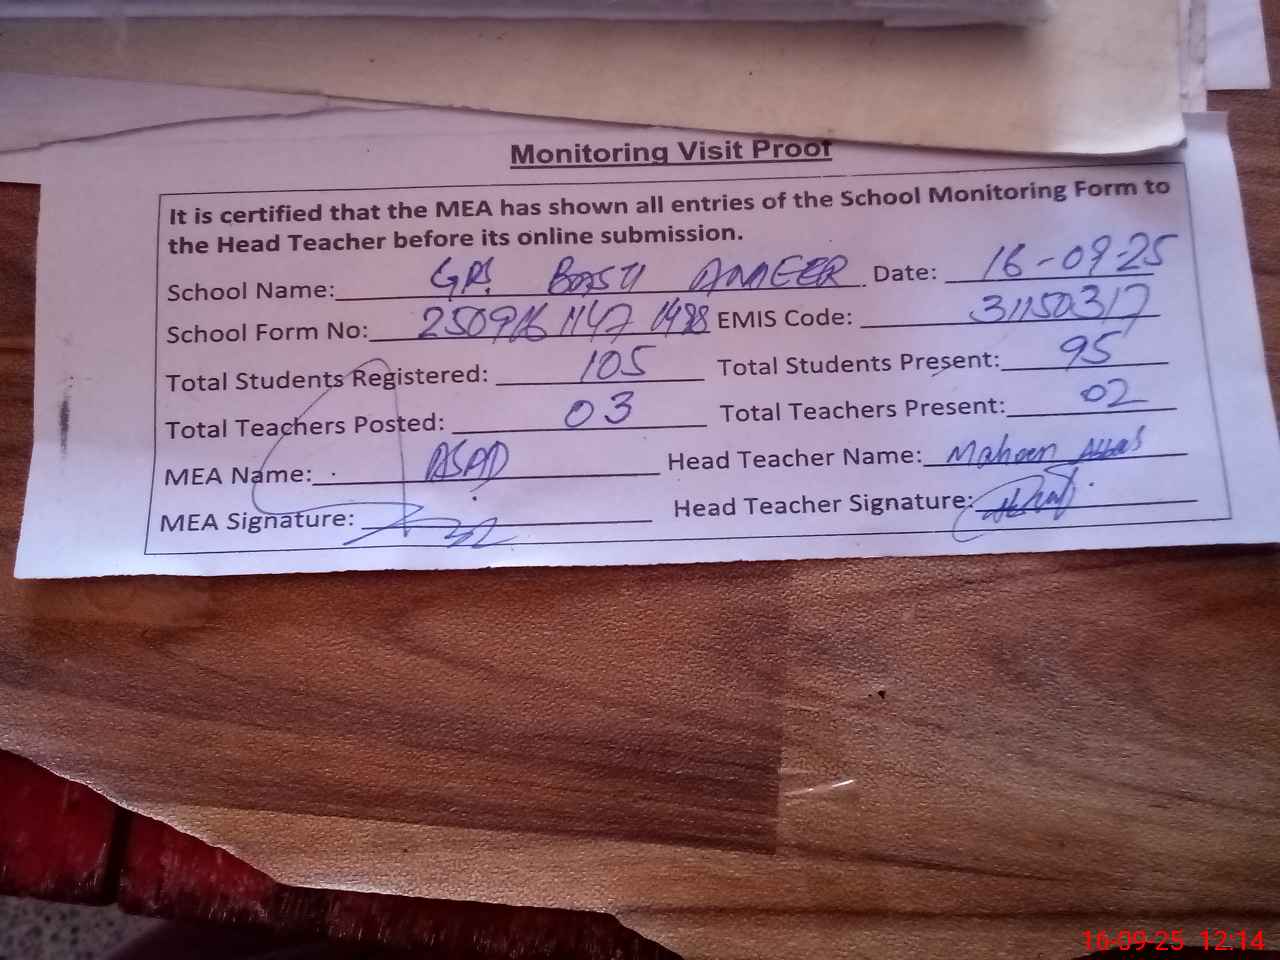 Monitoring Visit Proof
It is certified that the MEA has shown all entries of the School Monitoring Form to
the Head Teacher before its online submission.
School Name: GPS BASTI AMEER Date: 16-09-25
School Form No: 250916 1147 1498 EMIS Code: 31150317
Total Students Registered: 105 Total Students Present: 95
Total Teachers Posted: 03 Total Teachers Present: 02
MEA Name: ASAD Head Teacher Name: Maheen Abbas
MEA Signature: Head Teacher Signature:
16-09-25 12:14